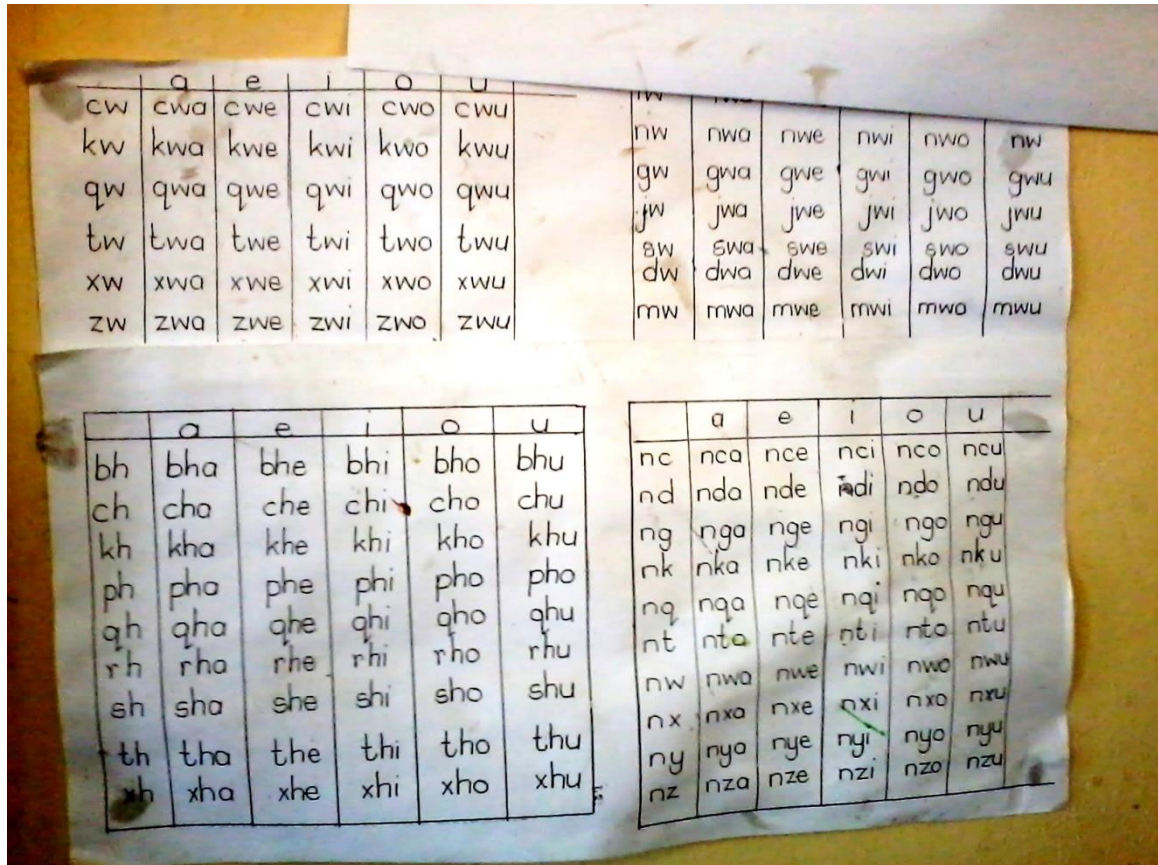 a e i o u
cw cwa cwe cwi cwo cwu
kw kwa kwe kwi kwo kwu
qw qwa qwe qwi qwo qwu
tw twa twe twi two twu
xw xwa xwe xwi xwo xwu
zw zwa zwe zwi zwo zwu
nw nwa nwe nwi nwo nw
gw gwa gwe gwi gwo gwu
jw jwa jwe jwi jwo jwu
sw swa swe swi swo swu
dw dwa dwe dwi dwo dwu
mw mwa mwe mwi mwo mwu
a e i o u
bh bha bhe bhi bho bhu
ch cha che chi cho chu
kh kha khe khi kho khu
ph pha phe phi pho pho
qh qha qhe qhi qho qhu
rh rha rhe rhi rho rhu
sh sha she shi sho shu
th tha the thi tho thu
xh xha xhe xhi xho xhu
a e i o u
nc nca nce nci nco ncu
nd nda nde ndi ndo ndu
ng nga nge ngi ngo ngu
nk nka nke nki nko nku
nq nqa nqe nqi nqo nqu
nt nta nte nti nto ntu
nw nwa nwe nwi nwo nwu
nx nxa nxe nxi nxo nxu
ny nya nye nyi nyo nyu
nz nza nze nzi nzo nzu